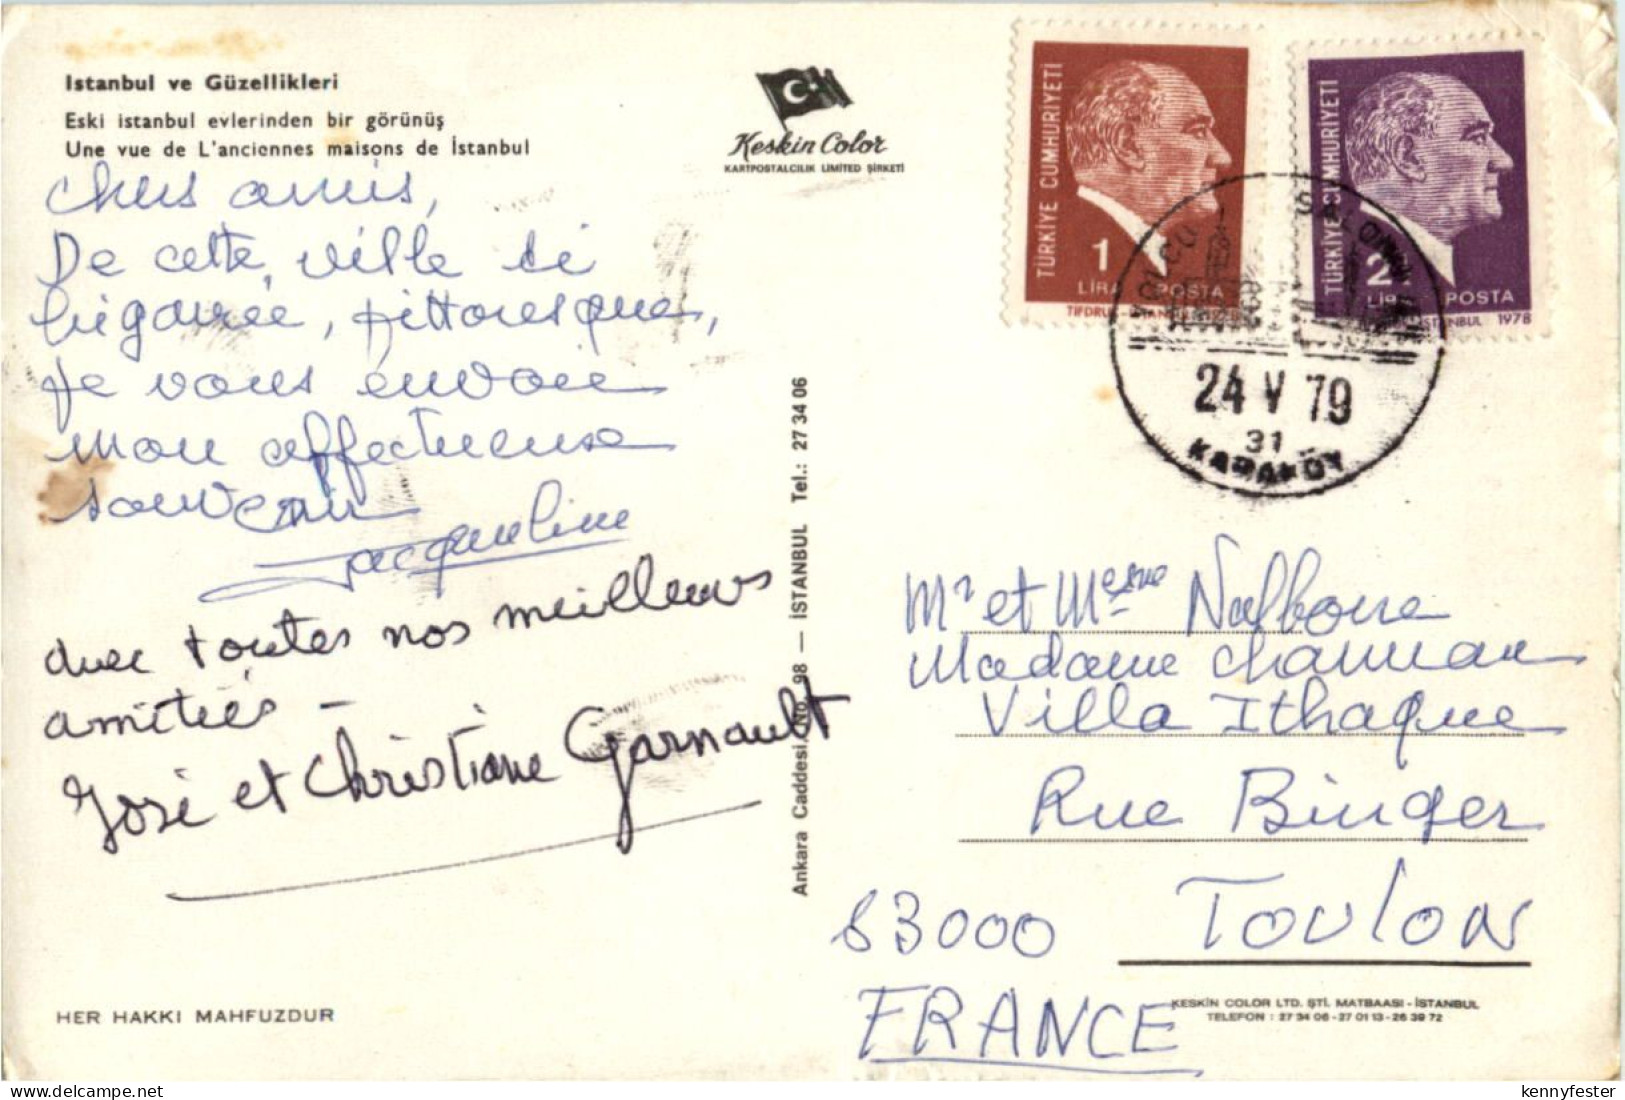 Istanbul ve Güzellikleri
Eski istanbul evlerinden bir görünüş
Une vue de L'anciennes maisons de İstanbul
Keskin Color
KARTPOSTALCILIK LIMITED ŞIRKETI
chers amis,
De cette ville si
bigarrée, pittoresque,
je vous envoie
mon affectueuse
souvenir
Jacqueline
avec toutes nos meilleures
amitiés -
José et Christiane Garnault
HER HAKKI MAHFUZDUR
Ankara Caddesi, No. 98 — İSTANBUL Tel.: 27 34 06
TÜRKİYE CUMHURİYETİ
1
LİRA POSTA
TÜRKİYE CUMHURİYETİ
2
LİRA POSTA
İSTANBUL 1978
YOLCU SALONU
24 V 79
31
KARAKÖY
Mr et Mme
Madame
Villa Ithaque
Rue Binger
83000 TOULON
FRANCE
KESKİN COLOR LTD. ŞTİ. MATBAASI - İSTANBUL
TELEFON : 27 34 06 - 27 01 13 - 26 39 72
kennyfester